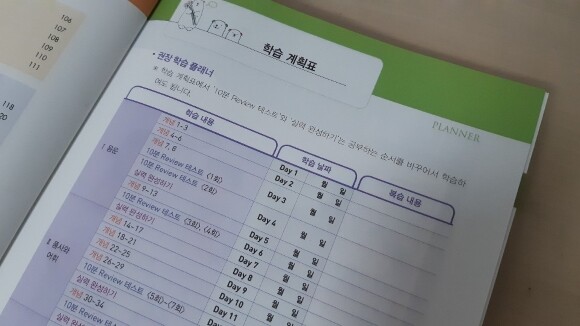 106
107
108
109
110
111
118
학습 계획표
PLANNER
• 권장 학습 플래너
※ 학습 계획표에서 '10분 Review 테스트'와 '실력 완성하기'는 공부하는 순서를 바꾸어서 학습하
여도 됩니다.
학습 내용 학습 날짜 복습 내용
Ⅰ 음운
개념 1~3 Day 1 월 일
개념 4~6 Day 2 월 일
개념 7, 8 Day 3 월 일
10분 Review 테스트 〈1회〉
10분 Review 테스트 〈2회〉
실력 완성하기 Day 4 월 일
개념 9~13 Day 5 월 일
10분 Review 테스트 〈3회〉, 〈4회〉 Day 6 월 일
실력 완성하기 Day 7 월 일
Ⅱ 품사와
어휘
개념 14~17 Day 8 월 일
개념 18~21 Day 9 월 일
개념 22~25 Day 10 월 일
개념 26~29 Day 11 월 일
10분 Review 테스트 〈5회〉~〈7회〉
실력 완성하기
개념 30~34
10분 Review 테스트
실력 완성하기